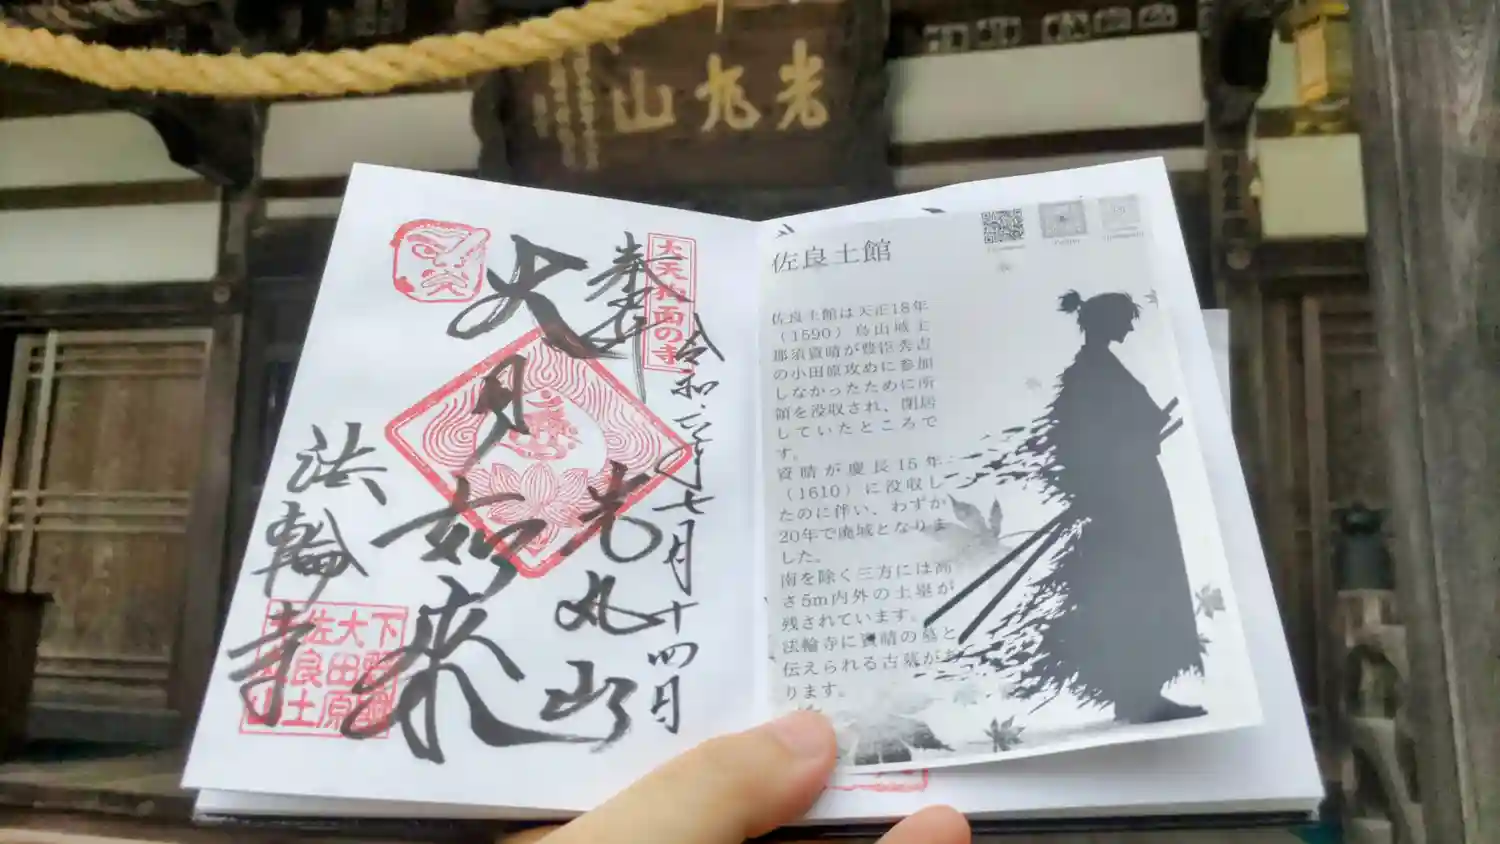 光丸山
大天狗面の寺
奉拝
令和
年七月十四日
光丸山
大日如来
法輪寺
下野國
大田原
佐良土
佐良土館
佐良土館は天正18年
（1590）烏山城主
那須資晴が豊臣秀吉
の小田原攻めに参加
しなかったために所
領を没収され、閉居
していたところで
す。
資晴が慶長15年
（1610）に没収し
たのに伴い、わずか
20年で廃城となりま
した。
南を除く三方には高
さ5m内外の土塁が
残されています。
法輪寺に資晴の墓と
伝えられる古墓があ
ります。